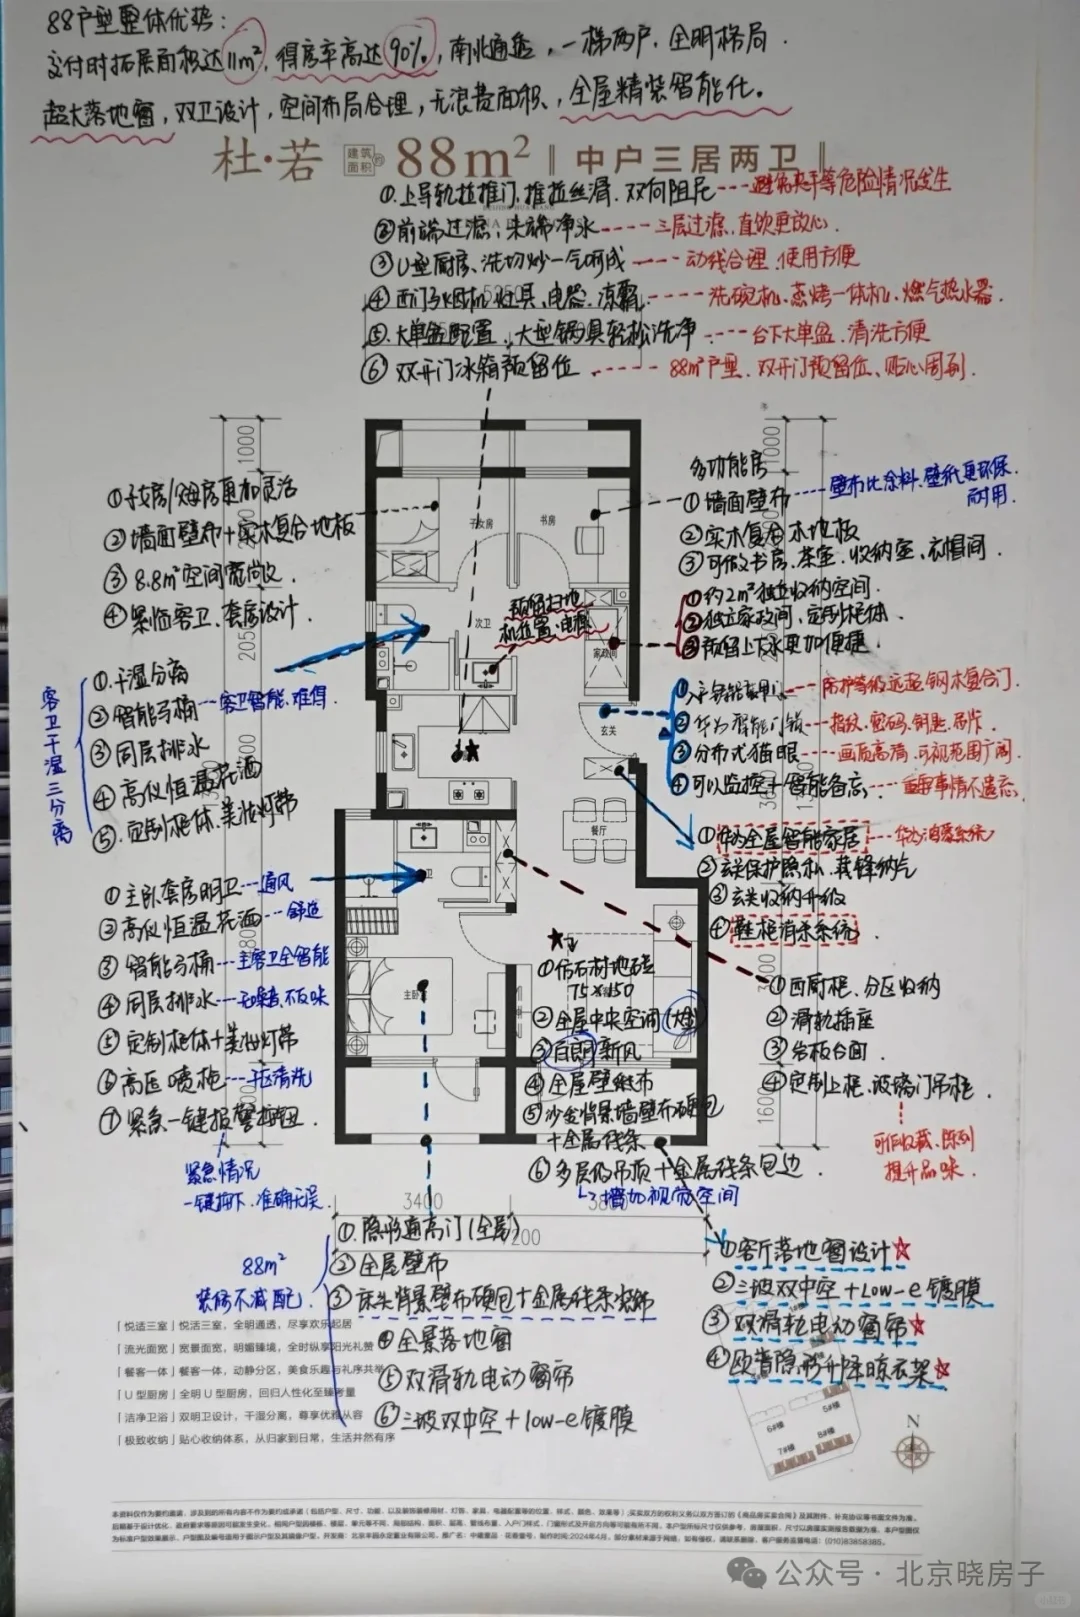 88户型整体优势：
交付时拓展面积达11m²，得房率高达90%，南北通透，一梯两户，全明格局．
超大落地窗，双卫设计，空间布局合理，无浪费面积，全屋精装智能化。
杜·若 建筑面积约 88m² 中户三居两卫
①上导轨拉推门，推拉丝滑．双向阻尼---避免夹手等危险情况发生
②前端过滤，末端净水---三层过滤，直饮更放心．
③U型厨房、洗切炒一气呵成---动线合理．使用方便
④西门子烟机．灶具、电器．凉霸---洗碗机、蒸烤一体机、燃气热水器．
⑤大单盆配置，大型锅具轻松洗净---台下大单盆．清洗方便
⑥双开门冰箱预留位---88m²户型．双开门预留位、贴心周到．
1000
1000
①子女房/父母房更加灵活
②墙面壁布+实木复合地板
③8.8m²空间宽尚
④紧临客卫、套房设计
子女房
书房
多功能房
①墙面壁布---壁布比涂料、壁纸更环保．耐用．
②实木复合木地板
③可做书房、茶室．收纳室、衣帽间
①约2m²独立收纳空间
②独立家政间，定制柜体
③预留上下水更加便捷
次卫
预留扫地
机位置、电源
家政间
玄关
客卫干湿三分离
①．干湿分离
②智能马桶---客卫智能、难得．
③同层排水
④高仪恒温花洒
⑤．定制柜体、美妆灯带
2050
②华为智能门锁---指纹、密码、钥匙、房卡
③分布式猫眼---画质高清．可视范围广阔
④可以监控+智能备忘---重要事情不遗忘．
餐厅
①华为全屋智能家居---华为鸿蒙系统
②玄关保护隐私．藏锋纳气
③玄关收纳升级
④鞋柜消杀系统．
①主卧套房明卫---通风
②高仪恒温花洒---舒适
③智能马桶---主客卫全智能
④同层排水---无噪音、不反味
⑤定制柜体+美妆灯带
⑥高压喷枪---
⑦紧急一键报警按钮．
紧急情况
一键按下．准确无误．
主卧
①仿石材地砖
75×150
②全屋中央空调(大金)
③百朗新风
④全屋壁纸布
⑤沙发背景墙壁布硬包
+金属线条
⑥多层级吊顶+金属线条包边．
↳增加视觉空间
①西厨柜、分区收纳
②滑轨插座
③岩板台面．
④定制上柜．玻璃门吊柜．
可作收藏、陈列
提升品味．
3400
88m²
装修不减配．
①．隐形通高门(全屋)
②全屋壁布
③床头背景壁布硬包+金属线条装饰
④全景落地窗
⑤双滑轨电动窗帘
⑥三玻双中空+low-e镀膜
①客厅落地窗设计☆
②三玻双中空+Low-e镀膜
③双滑轨电动窗帘☆
④欧普隐形升降晾衣架☆
「悦适三室」悦活三室，全明通透，尽享欢乐起居
「流光面宽」宽景面宽，明媚臻境，全时纵享阳光礼赞
「餐客一体」餐客一体，动静分区，美食乐趣与礼序共举
「U型厨房」全明U型厨房，回归人性化至臻考量
「洁净卫浴」双明卫设计，干湿分离，尊享优雅从容
「极致收纳」贴心收纳体系，从归家到日常，生活井然有序
5#楼
6#楼
7#楼
8#楼
N
公众号 · 北京晓房子